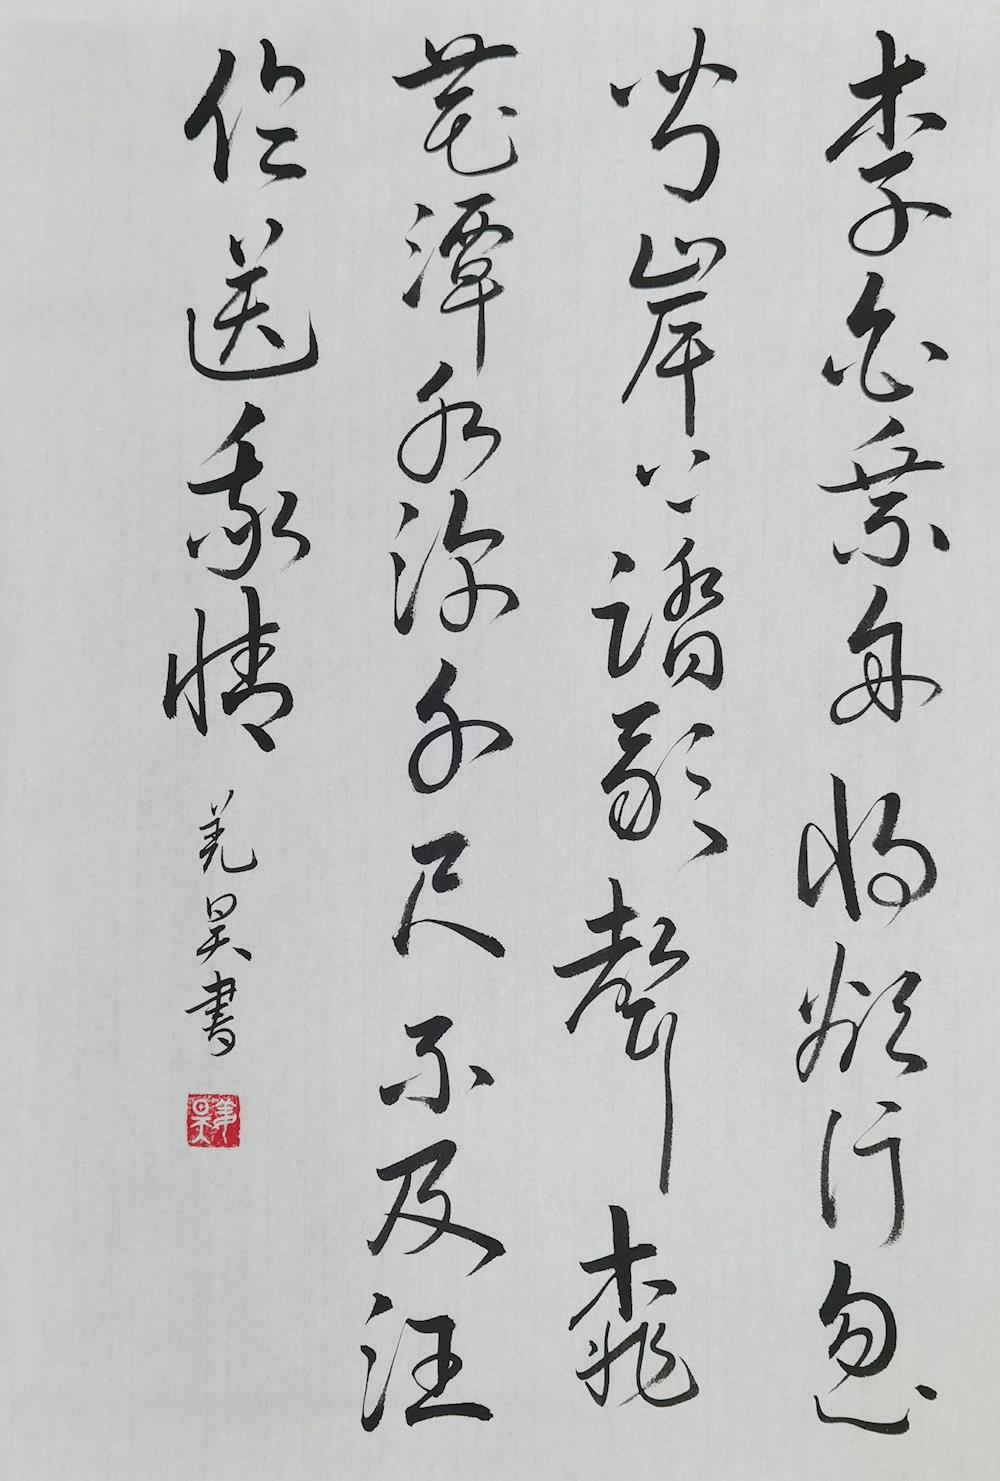 李白乘舟將欲行忽
聞岸上踏歌聲桃
花潭水深千尺不及汪
倫送我情
姜昊書
姜昊